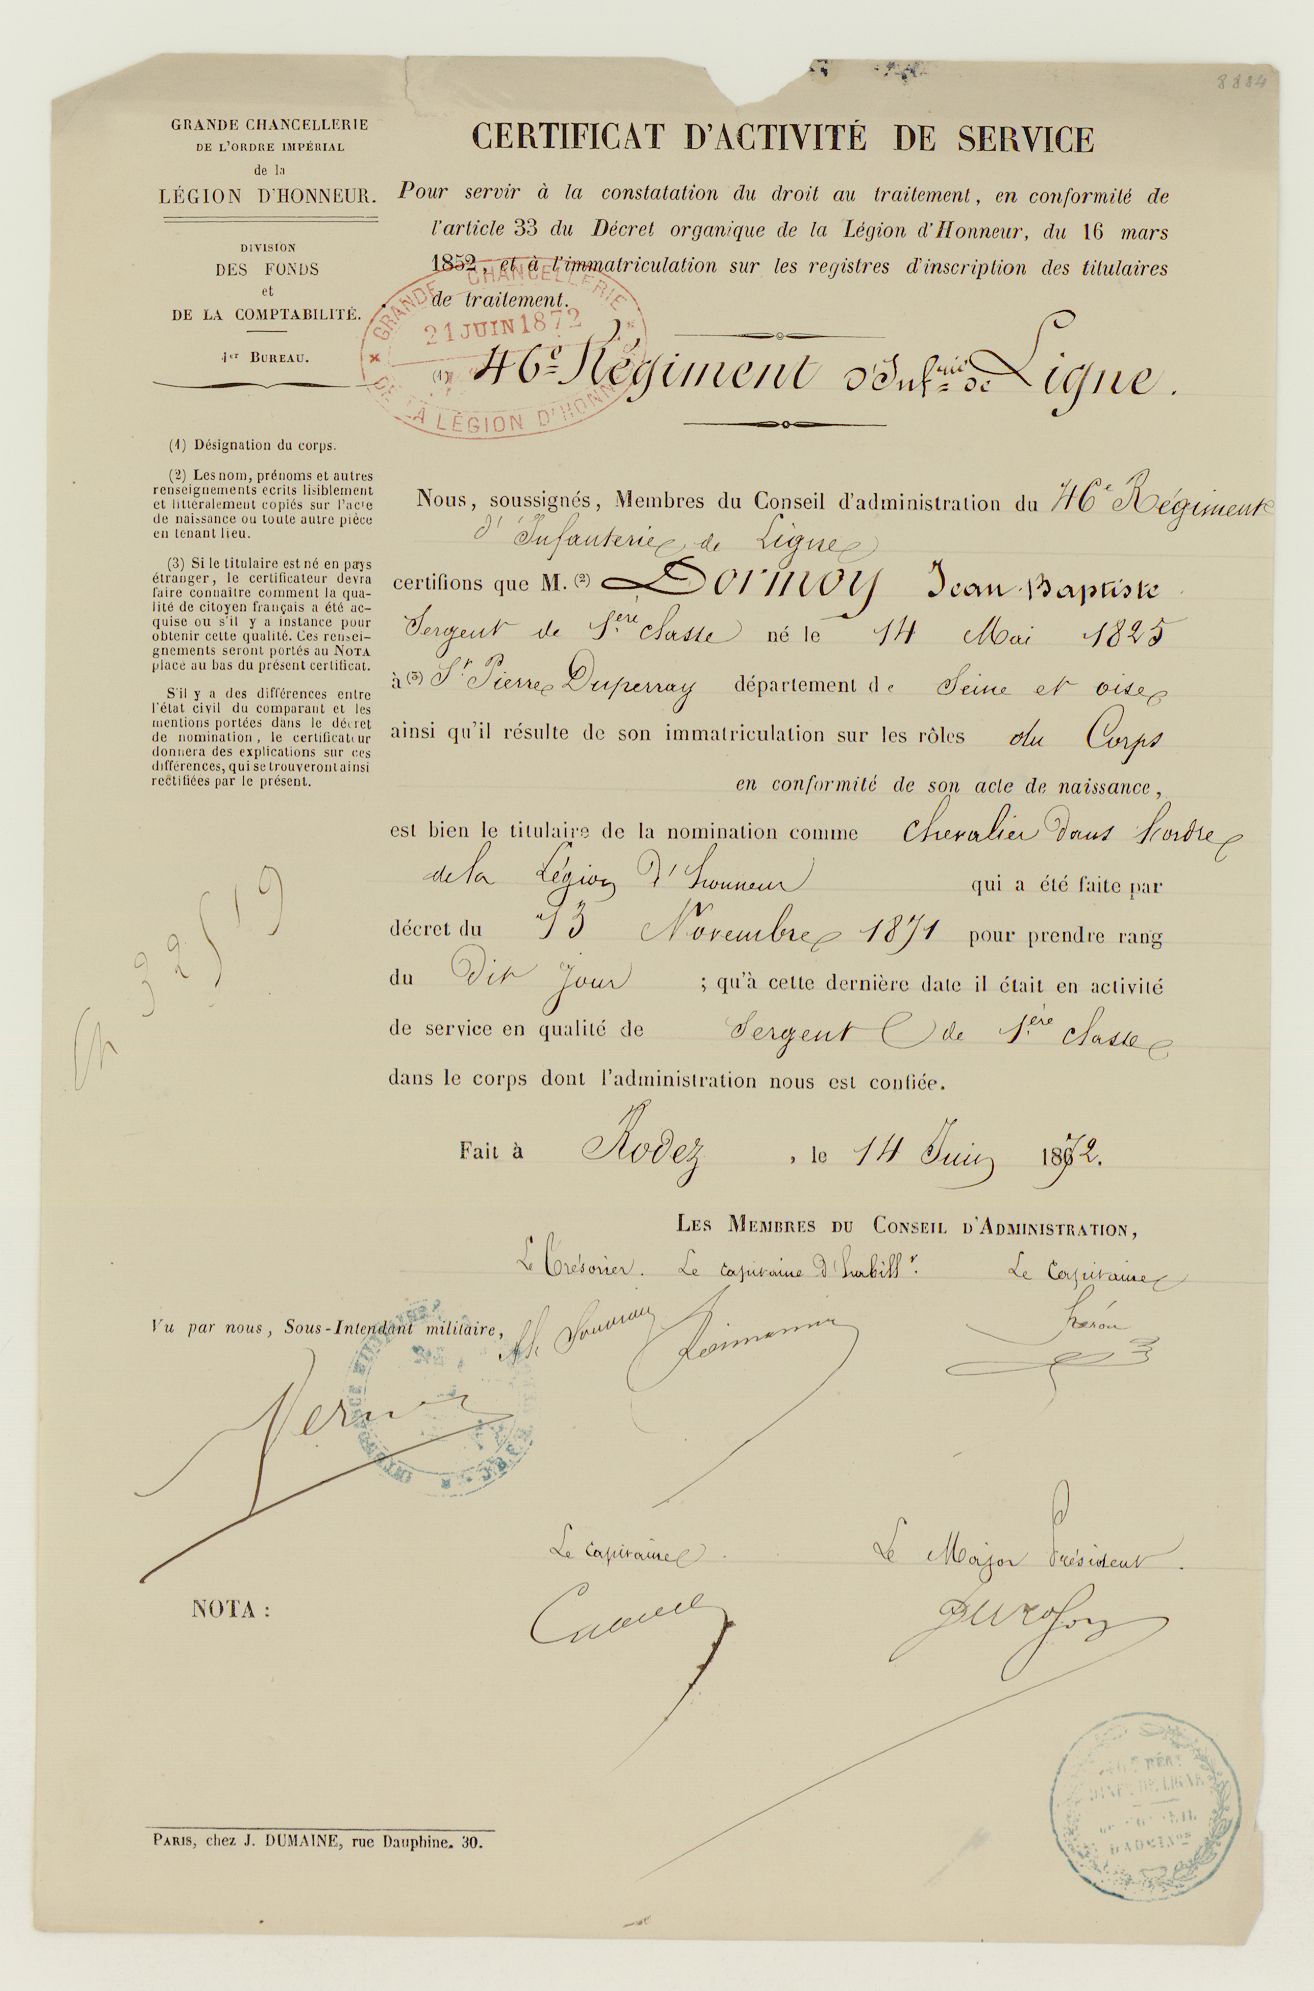 8884
GRANDE CHANCELLERIE
DE L'ORDRE IMPÉRIAL
de la
LÉGION D'HONNEUR.
DIVISION
DES FONDS
et
DE LA COMPTABILITÉ.
1er BUREAU.
CERTIFICAT D'ACTIVITÉ DE SERVICE
Pour servir à la constatation du droit au traitement, en conformité de
l'article 33 du Décret organique de la Légion d'Honneur, du 16 mars
1852, et à l'immatriculation sur les registres d'inscription des titulaires
de traitement.
GRANDE CHANCELLERIE
21 JUIN 1872
DE LA LÉGION D'HONN
(1) 46e Régiment d'Infrie de Ligne.
(1) Désignation du corps.
(2) Les nom, prénoms et autres
renseignements écrits lisiblement
et littéralement copiés sur l'acte
de naissance ou toute autre pièce
en tenant lieu.
(3) Si le titulaire est né en pays
étranger, le certificateur devra
faire connaître comment la qua-
lité de citoyen français a été ac-
quise ou s'il y a instance pour
obtenir cette qualité. Ces rensei-
gnements seront portés au NOTA
placé au bas du présent certificat.
S'il y a des différences entre
l'état civil du comparant et les
mentions portées dans le décret
de nomination, le certificateur
donnera des explications sur ces
différences, qui se trouveront ainsi
rectifiées par le présent.
32519
Nous, soussignés, Membres du Conseil d'administration du 46e Régiment
d'Infanterie de Ligne
certifions que M. (2) Dormoy Jean-Baptiste
Sergent de 1ère classe né le 14 Mai 1825
à (3) St Pierre Duperray département de Seine et oise
ainsi qu'il résulte de son immatriculation sur les rôles du Corps
en conformité de son acte de naissance,
est bien le titulaire de la nomination comme Chevalier dans l'ordre
de la Légion d'honneur qui a été faite par
décret du 13 Novembre 1871 pour prendre rang
du Dit jour ; qu'à cette dernière date il était en activité
de service en qualité de Sergent de 1ère classe
dans le corps dont l'administration nous est confiée.
Fait à Rodez, le 14 Juin 1872.
LES MEMBRES DU CONSEIL D'ADMINISTRATION,
Le Trésorier. Le capitaine d'habillt. Le Capitaine
Héron
Vu par nous, Sous-Intendant militaire,
Le capitaine Le Major Président.
NOTA :
46E RÉGT
D'INF. DE LIGNE
CONSEIL
D'ADMINon
PARIS, chez J. DUMAINE, rue Dauphine. 30.